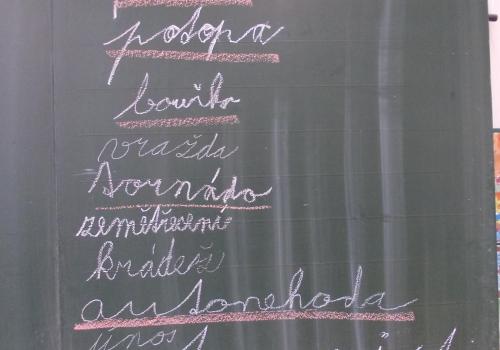 potopa
bouřka
vražda
tornádo
zemětřesení
krádež
autonehoda
únos